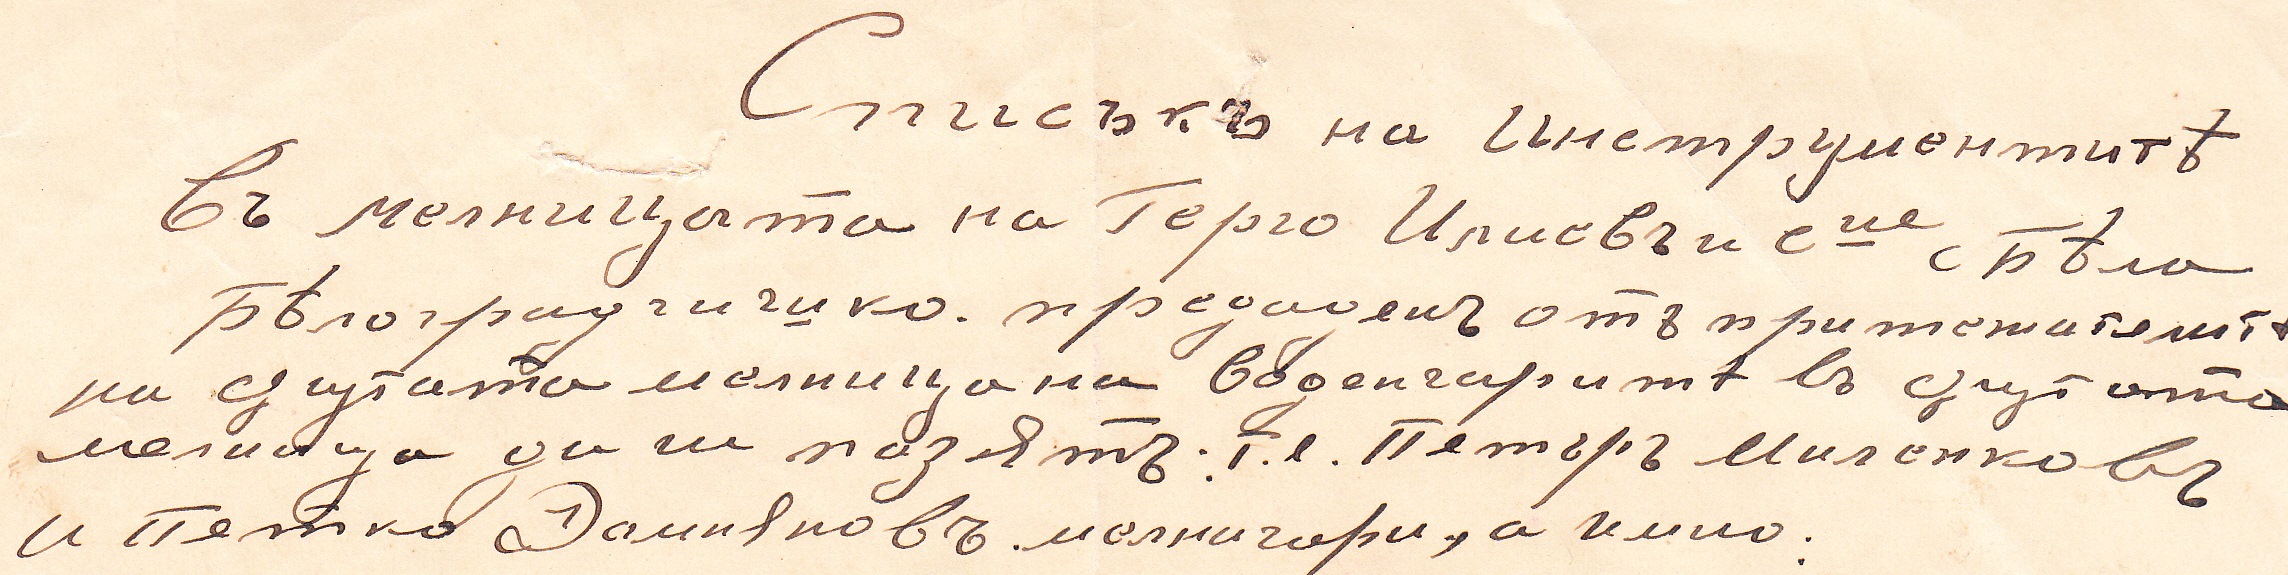 Списъкъ на Инструментитѣ
Въ мелницата на Герго Илиевъ и с ие с. Бѣла
Бѣлоградчишко. предаденъ отъ притежателитѣ
на същата мелница на Воденичаритѣ въ същата
мелница да ги пазятъ: т.е. Петъръ Миленковъ
и Петко Дамяновъ. мелничари, а имно: